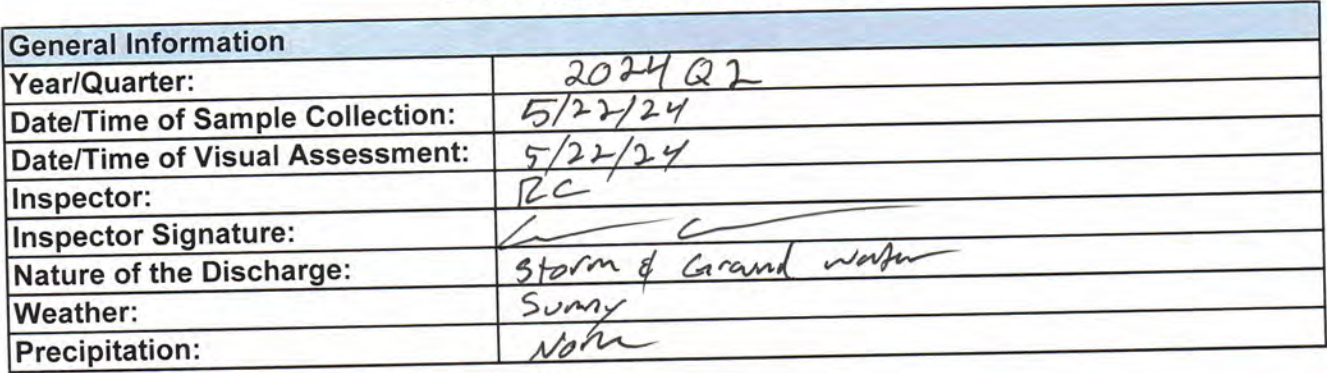 General Information
Year/Quarter: 2024 Q2
Date/Time of Sample Collection: 5/22/24
Date/Time of Visual Assessment: 5/22/24
Inspector: RC
Inspector Signature:
Nature of the Discharge: Storm & Ground water
Weather: Sunny
Precipitation: None